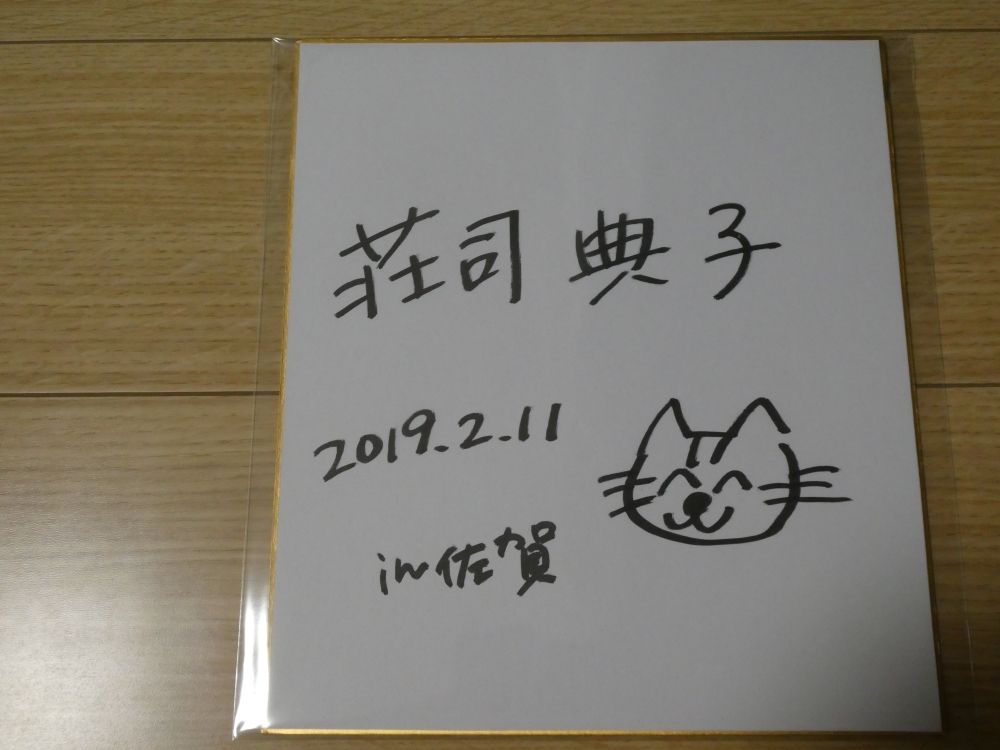 荘司典子
2019.2.11
in佐賀